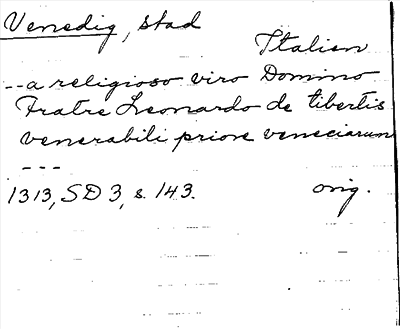 Venedig, stad
Italien
-- a religioso viro Domino
Fratre Leonardo de tibertis
venerabili priore veneciarum
---
1313, SD 3, s. 143. orig.